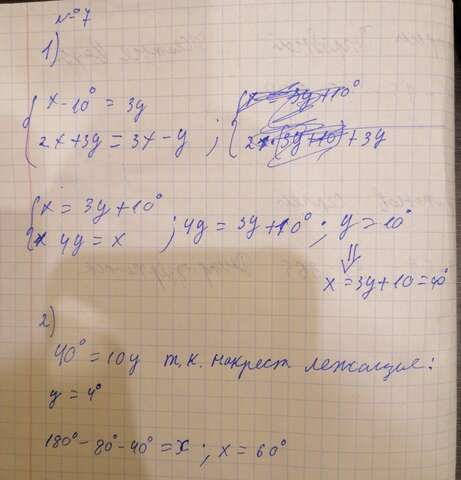 №7
1)
{ x - 10° = 3y
2x + 3y = 3x - y ;
{ x = 3y + 10°
4y = x ; 4y = 3y + 10° ; y = 10°
⇓
x = 3y + 10 = 40°
2)
40° = 10y т.к. накрест лежащие:
y = 4°
180° - 80° - 40° = x ; x = 60°